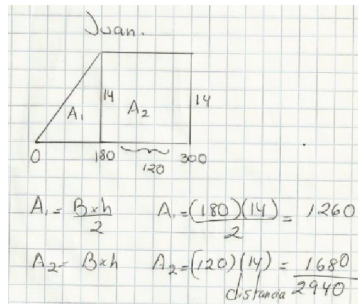 Juan.
14
14
A₁
A₂
0 180 300
120
A₁ = Bxh/2 A₁ = (180)(14)/2 = 1260
A₂ = Bxh A₂ = (120)(14) = 1680
distancia 2940